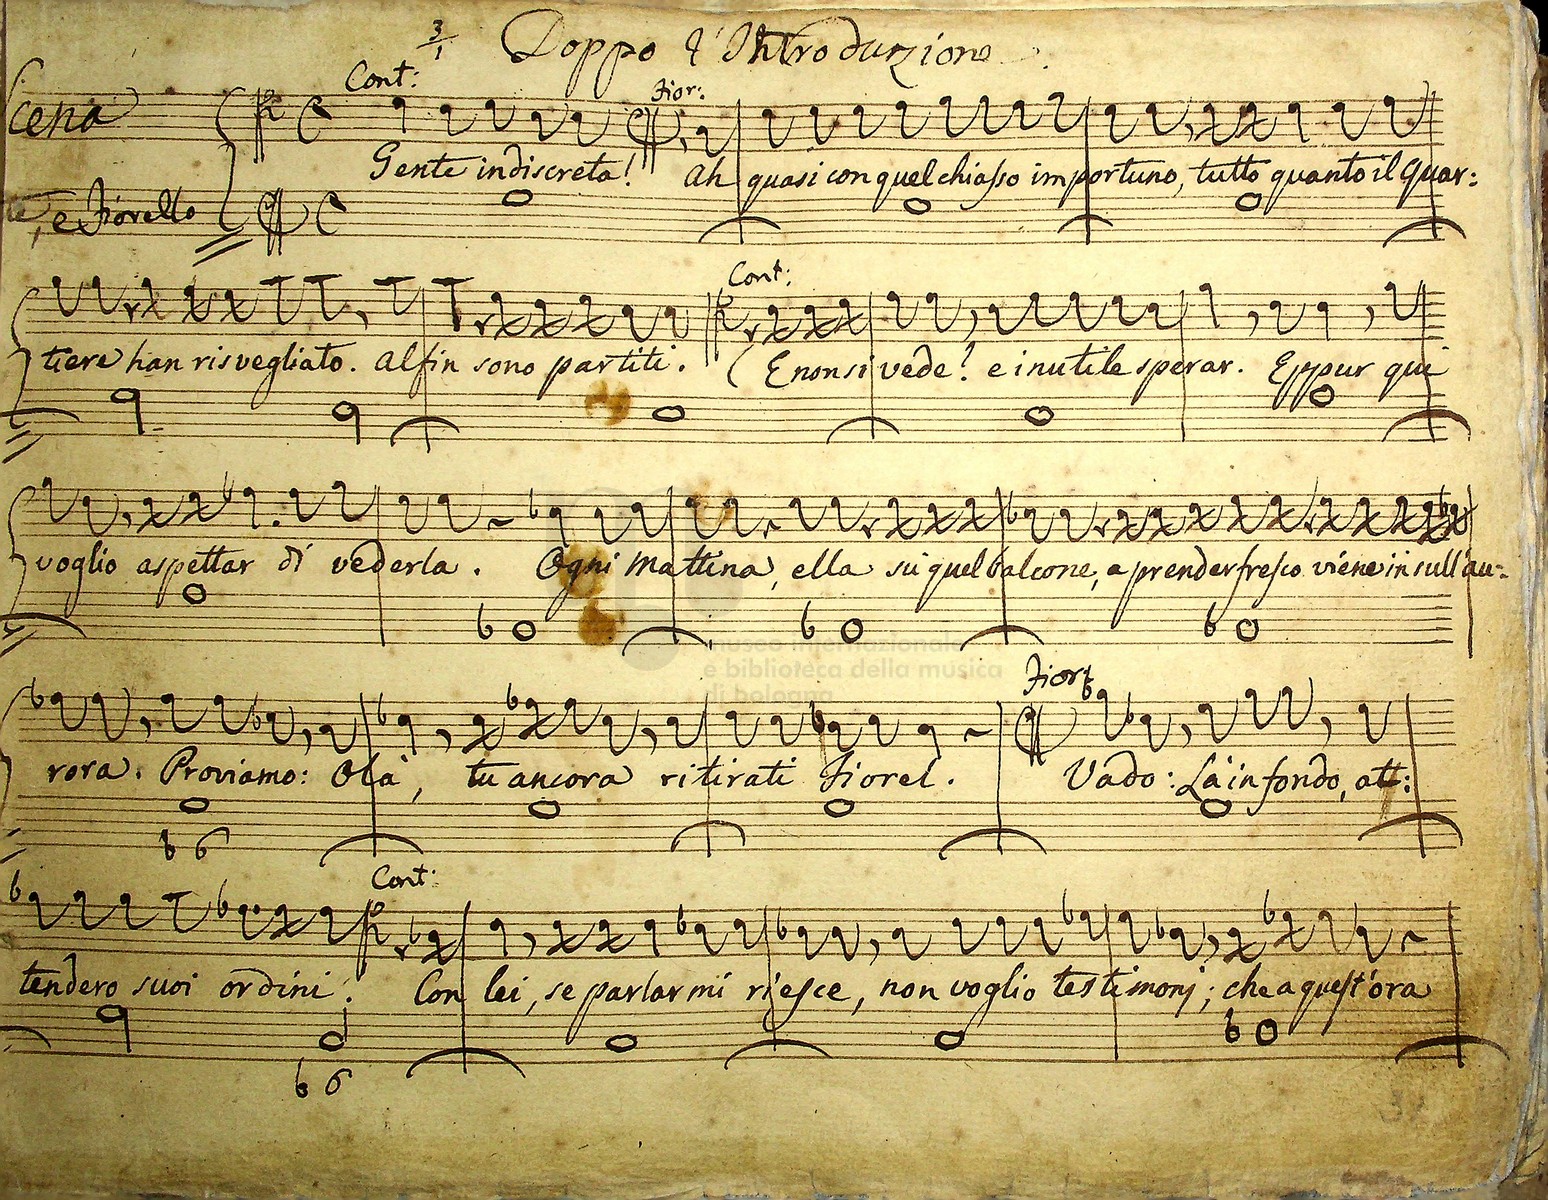 3/1 Doppo l'Introduzione.
Cont: Fior:
Scena
Gente indiscreta! Ah quasi con quel chiasso importuno, tutto quanto il Quar:
e Fiorello
Cont:
tiere han risvegliato. Alfin sono partiti. ( E non si vede! e inutile sperar. Eppur qui
voglio aspettar di vederla. Ogni mattina, ella su quel balcone, a prender fresco viene in sull'au:
museo internazionale
e biblioteca della musica
di bologna
Fior:
rora. Proviamo: Olà, tu ancora ritirati Fiorel. Vado: Là in fondo, att:
b 6
Cont:
tendero suoi ordini. Con lei, se parlarmi riesce, non voglio testimonj; che a quest'ora
b 6